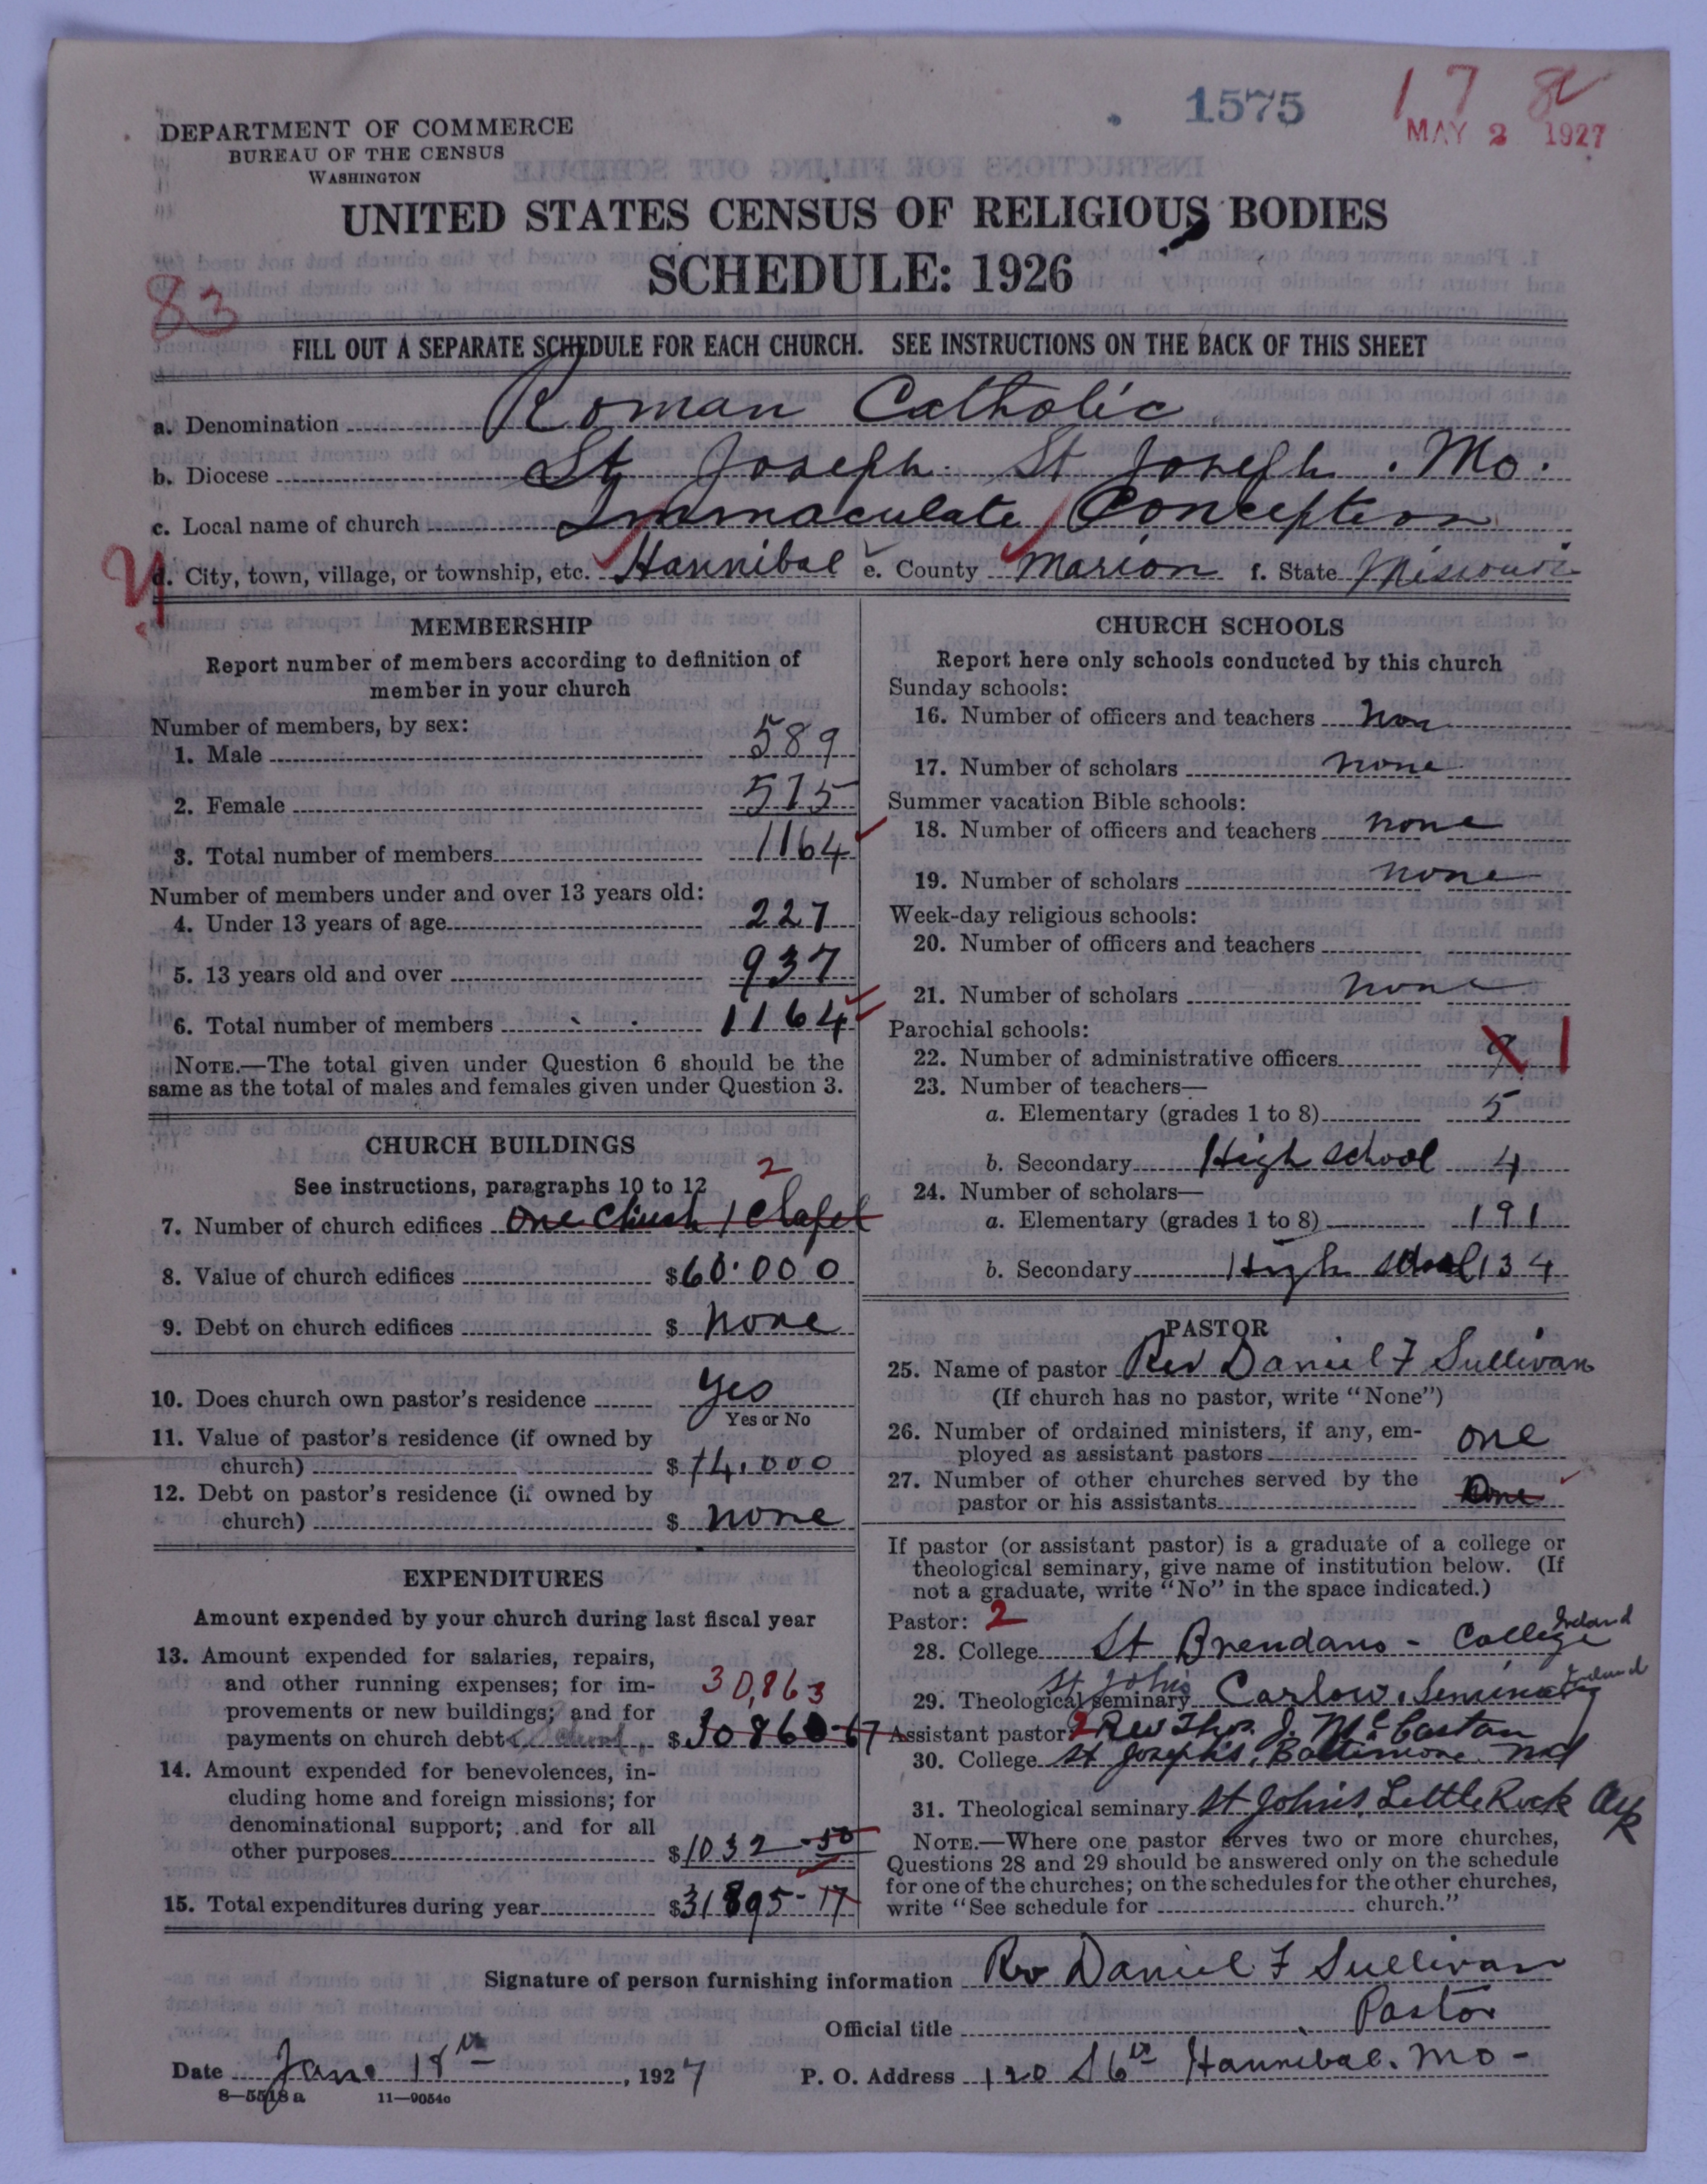 1575
1 7 8
MAY 2 1927
DEPARTMENT OF COMMERCE
BUREAU OF THE CENSUS
WASHINGTON
UNITED STATES CENSUS OF RELIGIOUS BODIES
SCHEDULE: 1926
83
FILL OUT A SEPARATE SCHEDULE FOR EACH CHURCH. SEE INSTRUCTIONS ON THE BACK OF THIS SHEET
a. Denomination Roman Catholic
b. Diocese St Joseph. St Joseph. Mo.
c. Local name of church Immaculate Conception
d. City, town, village, or township, etc. Hannibal e. County Marion f. State Missouri
MEMBERSHIP
Report number of members according to definition of
member in your church
Number of members, by sex:
1. Male 589
2. Female 575
3. Total number of members 1164
Number of members under and over 13 years old:
4. Under 13 years of age 227
5. 13 years old and over 937
6. Total number of members 1164
NOTE.—The total given under Question 6 should be the
same as the total of males and females given under Question 3.
CHURCH BUILDINGS
See instructions, paragraphs 10 to 12
2
7. Number of church edifices One Church 1 Chapel
8. Value of church edifices $60.000
9. Debt on church edifices $ none
10. Does church own pastor's residence yes
Yes or No
11. Value of pastor's residence (if owned by
church) $14.000
12. Debt on pastor's residence (if owned by
church) $ none
EXPENDITURES
Amount expended by your church during last fiscal year
13. Amount expended for salaries, repairs,
and other running expenses; for im-
provements or new buildings; and for
payments on church debt $30860-67
30,863
14. Amount expended for benevolences, in-
cluding home and foreign missions; for
denominational support; and for all
other purposes $1032-50
15. Total expenditures during year $31895-17
CHURCH SCHOOLS
Report here only schools conducted by this church
Sunday schools:
16. Number of officers and teachers non
17. Number of scholars none
Summer vacation Bible schools:
18. Number of officers and teachers none
19. Number of scholars none
Week-day religious schools:
20. Number of officers and teachers
21. Number of scholars none
Parochial schools:
22. Number of administrative officers 9 1
23. Number of teachers—
a. Elementary (grades 1 to 8) 5
b. Secondary High School 4
24. Number of scholars—
a. Elementary (grades 1 to 8) 191
b. Secondary High School 134
PASTOR
25. Name of pastor Rev Daniel F Sullivan
(If church has no pastor, write "None")
26. Number of ordained ministers, if any, em-
ployed as assistant pastors one
27. Number of other churches served by the
pastor or his assistants One
If pastor (or assistant pastor) is a graduate of a college or
theological seminary, give name of institution below. (If
not a graduate, write "No" in the space indicated.)
Pastor: 2
28. College St Brendans - College Ireland
29. Theological seminary St Johns Carlow. Seminary Ireland
Assistant pastor: 2 Rev Thos. J. McCartan
30. College St Josephs, Baltimore Md
31. Theological seminary St Johns, Little Rock Ark
NOTE.—Where one pastor serves two or more churches,
Questions 28 and 29 should be answered only on the schedule
for one of the churches; on the schedules for the other churches,
write "See schedule for church."
Signature of person furnishing information Rev Daniel F Sullivan
Official title Pastor
Date Jan. 18th, 1927 P. O. Address 120 S 6th Hannibal. Mo-
8—5518 a 11—9054c